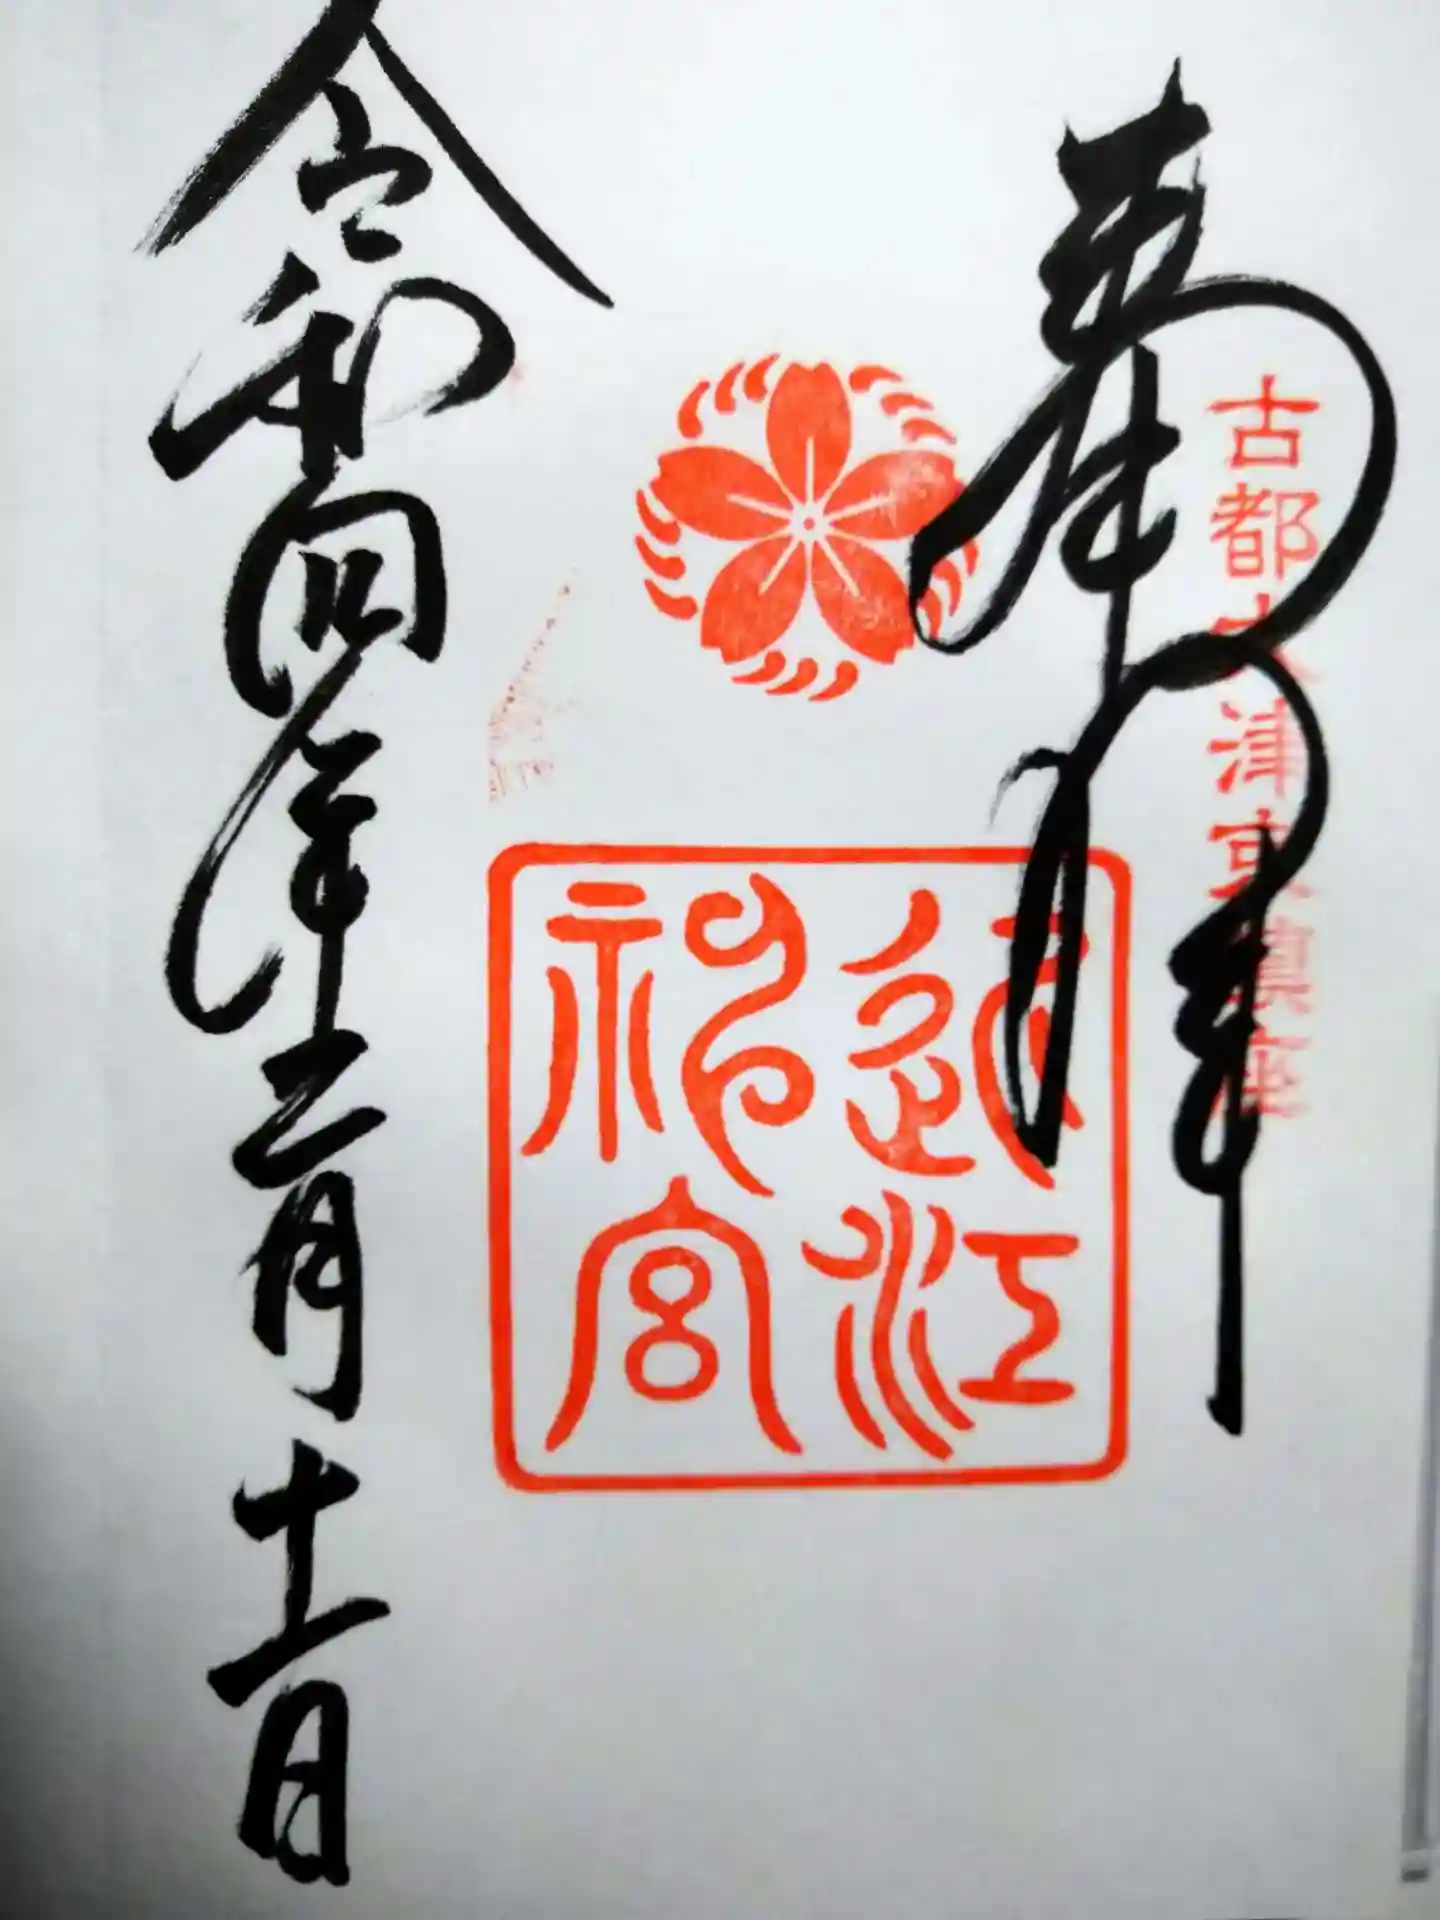 奉拝
古都大津京鎮座
近江
神宮
令和四年二月十一日